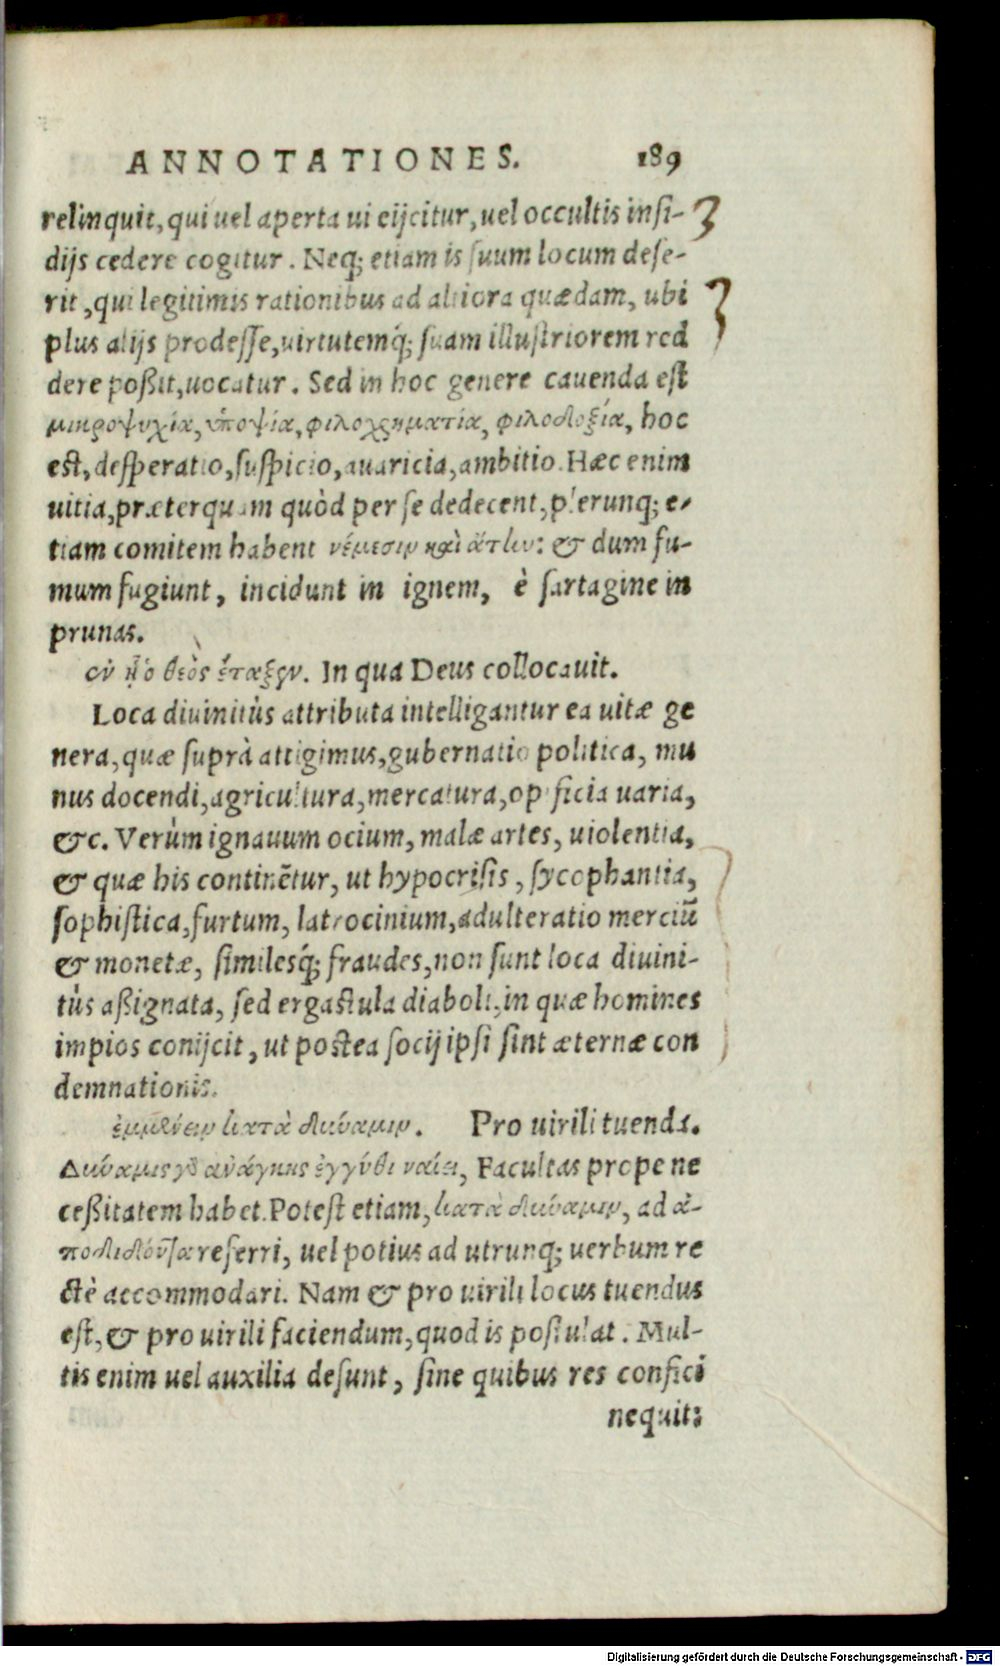 ANNOTATIONES. 189
relinquit, qui uel aperta ui eijcitur, uel occultis insi-
dijs cedere cogitur. Neq; etiam is suum locum dese-
rit, qui legitimis rationibus ad altiora quædam, ubi
plus alijs prodesse, uirtutemq́; suam illustriorem red
dere poßit, uocatur. Sed in hoc genere cauenda est
μικροψυχία, ὑποψία, φιλοχρηματία, φιλοδοξία, hoc
est, desperatio, suspicio, auaricia, ambitio. Hæc enim
uitia, præterquam quòd per se dedecent, plerunq; e-
tiam comitem habent νέμεσιν καὶ ἄτην: & dum fu-
mum fugiunt, incidunt in ignem, è sartagine in
prunas.
ἐν ᾗ ὁ θεὸς ἔταξεν. In qua Deus collocauit.
Loca diuinitùs attributa intelligantur ea uitæ ge
nera, quæ suprà attigimus, gubernatio politica, mu
nus docendi, agricultura, mercatura, opificia uaria,
&c. Verùm ignauum ocium, malæ artes, uiolentia,
& quæ his continẽtur, ut hypocrisis, sycophantia,
sophistica, furtum, latrocinium, adulteratio merciũ
& monetæ, similesq́; fraudes, non sunt loca diuini-
tùs aßignata, sed ergastula diaboli, in quæ homines
impios conijcit, ut postea socij ipsi sint æternæ con
demnationis.
ἐμμένειν κατὰ δύναμιν. Pro uirili tuenda.
Δύναμις γὸ ἀνάγκης ἐγγύθι ναίει, Facultas prope ne
ceßitatem habet. Potest etiam, κατὰ δύναμιν, ad ἀ-
ποδιδόντα referri, uel potius ad utrunq; uerbum re
ctè accommodari. Nam & pro uirili locus tuendus
est, & pro uirili faciendum, quod is postulat. Mul-
tis enim uel auxilia desunt, sine quibus res confici
nequit:
Digitalisierung gefördert durch die Deutsche Forschungsgemeinschaft - DFG